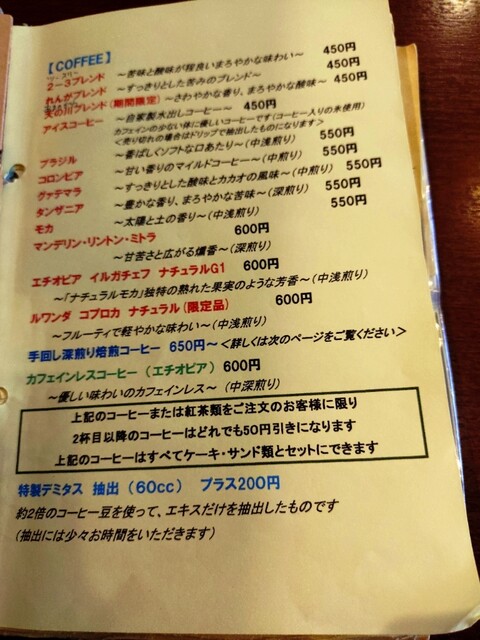 【COFFEE】
ツー スリー
2－3ブレンド ～苦味と酸味が程良いまろやかな味わい～ 450円
れんがブレンド ～すっきりとした苦みのブレンド～ 450円
天の川ブレンド(期間限定) ～さわやかな香り、まろやかな酸味～ 450円
アイスコーヒー ～自家製水出しコーヒー～ 450円
カフェインの少ない体に優しいコーヒーです(コーヒー入りの氷使用)
＜売り切れの場合はドリップで抽出したものになります＞
ブラジル ～香ばしくソフトな口あたり～(中浅煎り) 550円
コロンビア ～甘い香りのマイルドコーヒー～(中煎り) 550円
グァテマラ ～すっきりとした酸味とカカオの風味～(中煎り) 550円
タンザニア ～豊かな香り、まろやかな苦味～(深煎り) 550円
モカ ～太陽と土の香り～(中浅煎り) 550円
マンデリン・リントン・ミトラ 600円
～甘苦さと広がる燻香～(深煎り)
エチオピア イルガチェフ ナチュラルG1 600円
～「ナチュラルモカ」独特の熟れた果実のような芳香～(中浅煎り)
ルワンダ コプロカ ナチュラル(限定品) 600円
～フルーティで軽やかな味わい～(中浅煎り)
手回し深煎り焙煎コーヒー 650円～＜詳しくは次のページをご覧ください＞
カフェインレスコーヒー(エチオピア) 600円
～優しい味わいのカフェインレス～(中深煎り)
上記のコーヒーまたは紅茶類をご注文のお客様に限り
2杯目以降のコーヒーはどれでも50円引きになります
上記のコーヒーはすべてケーキ・サンド類とセットにできます
特製デミタス 抽出(60cc) プラス200円
約2倍のコーヒー豆を使って、エキスだけを抽出したものです
(抽出には少々お時間をいただきます)